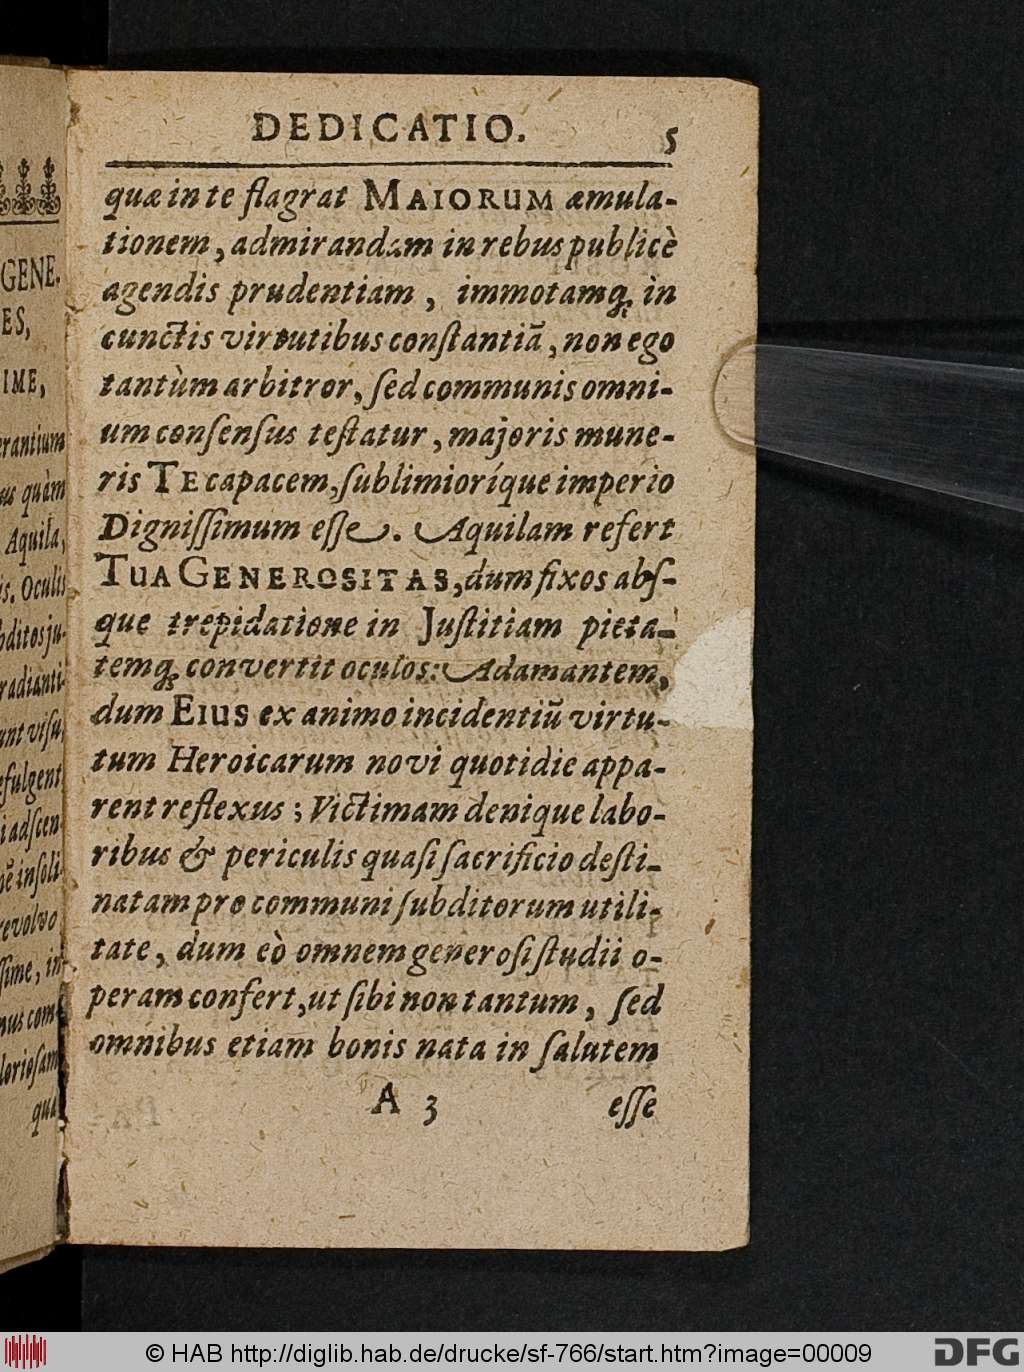 DEDICATIO. 5
quæ in te flagrat MAIORUM æmula-
tionem, admirandam in rebus publicè
agendis prudentiam, immotamq; in
cunctis virtutibus conſtantiã, non ego
tantùm arbitror, ſed communis omni-
um conſenſus teſtatur, majoris mune-
ris TE capacem, ſublimioríque imperio
Digniſſimum eſſe. Aquilam refert
TUA GENEROSITAS, dum fixos abſ-
que trepidatione in Juſtitiam pieta-
temq; convertit oculos: Adamantem,
dum EIUS ex animo incidentiũ virtu-
tum Heroicarum novi quotidie appa-
rent reflexus; Victimam denique labo-
ribus & periculis quaſi ſacrificio deſti-
natam pro communi ſubditorum utili-
tate, dum eò omnem generoſi ſtudii o-
peram confert, ut ſibi non tantum, ſed
omnibus etiam bonis nata in ſalutem
A 3 eſſe
GENE.
ES,
IME,
erantium
quàm
Aquila,
is. Oculis
bditos ju-
radianti-
unt viſu,
efulgent
i adſcen-
inſoli-
revolvo
ſſime, in-
nus com-
lorioſam
quæ
© HAB http://diglib.hab.de/drucke/sf-766/start.htm?image=00009
DFG